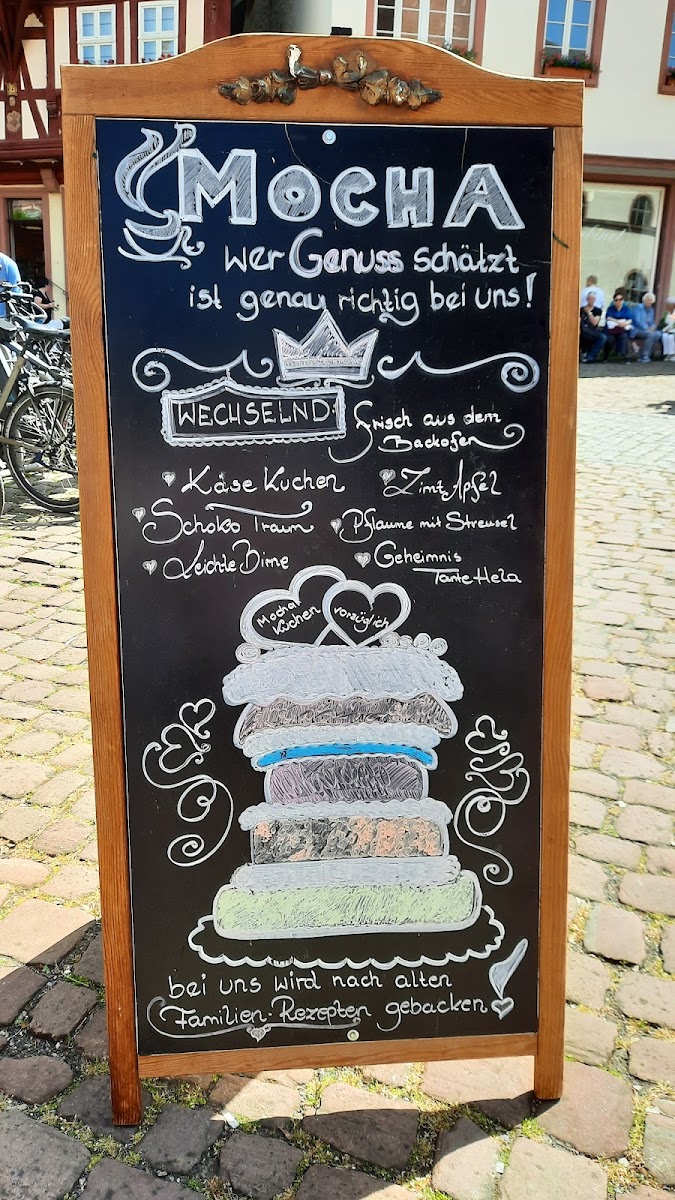 MOCHA
Wer Genuss schätzt
ist genau richtig bei uns!
WECHSELND:
frisch aus dem
Backofen
Käse Kuchen
Zimt Apfel
Schoko Traum
Pflaume mit Streusel
Leichte Birne
Geheimnis
Tante Hela
Mocha
Kuchen
vorzüglich
bei uns wird nach alten
Familien-Rezepten gebacken